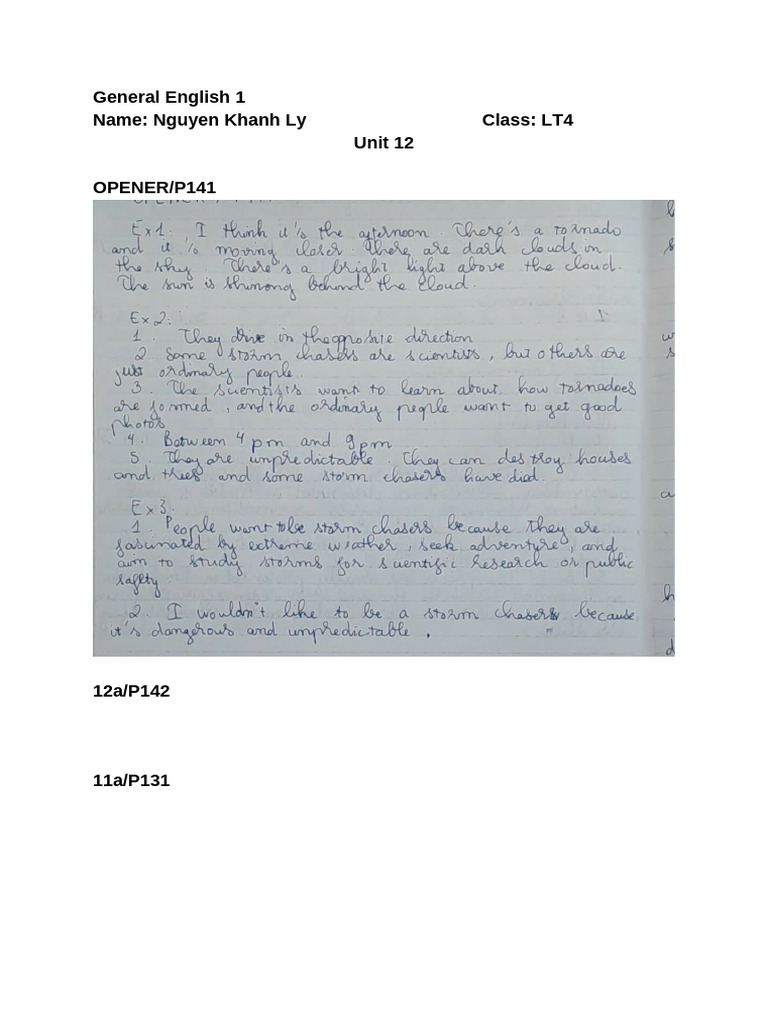 General English 1
Name: Nguyen Khanh Ly Class: LT4
Unit 12
OPENER/P141
Ex1. I think it's the afternoon. There's a tornado
and it's moving closer. There are dark clouds in
the sky. There's a bright light above the cloud.
The sun is shinong behind the cloud.
Ex2:
1. They drive in the opposite direction
2. Some storm chasers are scientists, but others are
just ordinary people.
3. The scientists want to learn about how tornadoes
are formed, and the ordinary people want to get good
photos
4. Between 4 pm and 9 pm
5. They are unpredictable. They can destroy houses
and trees and some storm chasers have died.
Ex3.
1. People want to be storm chasers because they are
fascinated by extreme weather, seek adventure, and
aim to study storms for scientific research or public
safety
2. I wouldn't like to be a storm chaser because
it's dangerous and unpredictable.
12a/P142
11a/P131